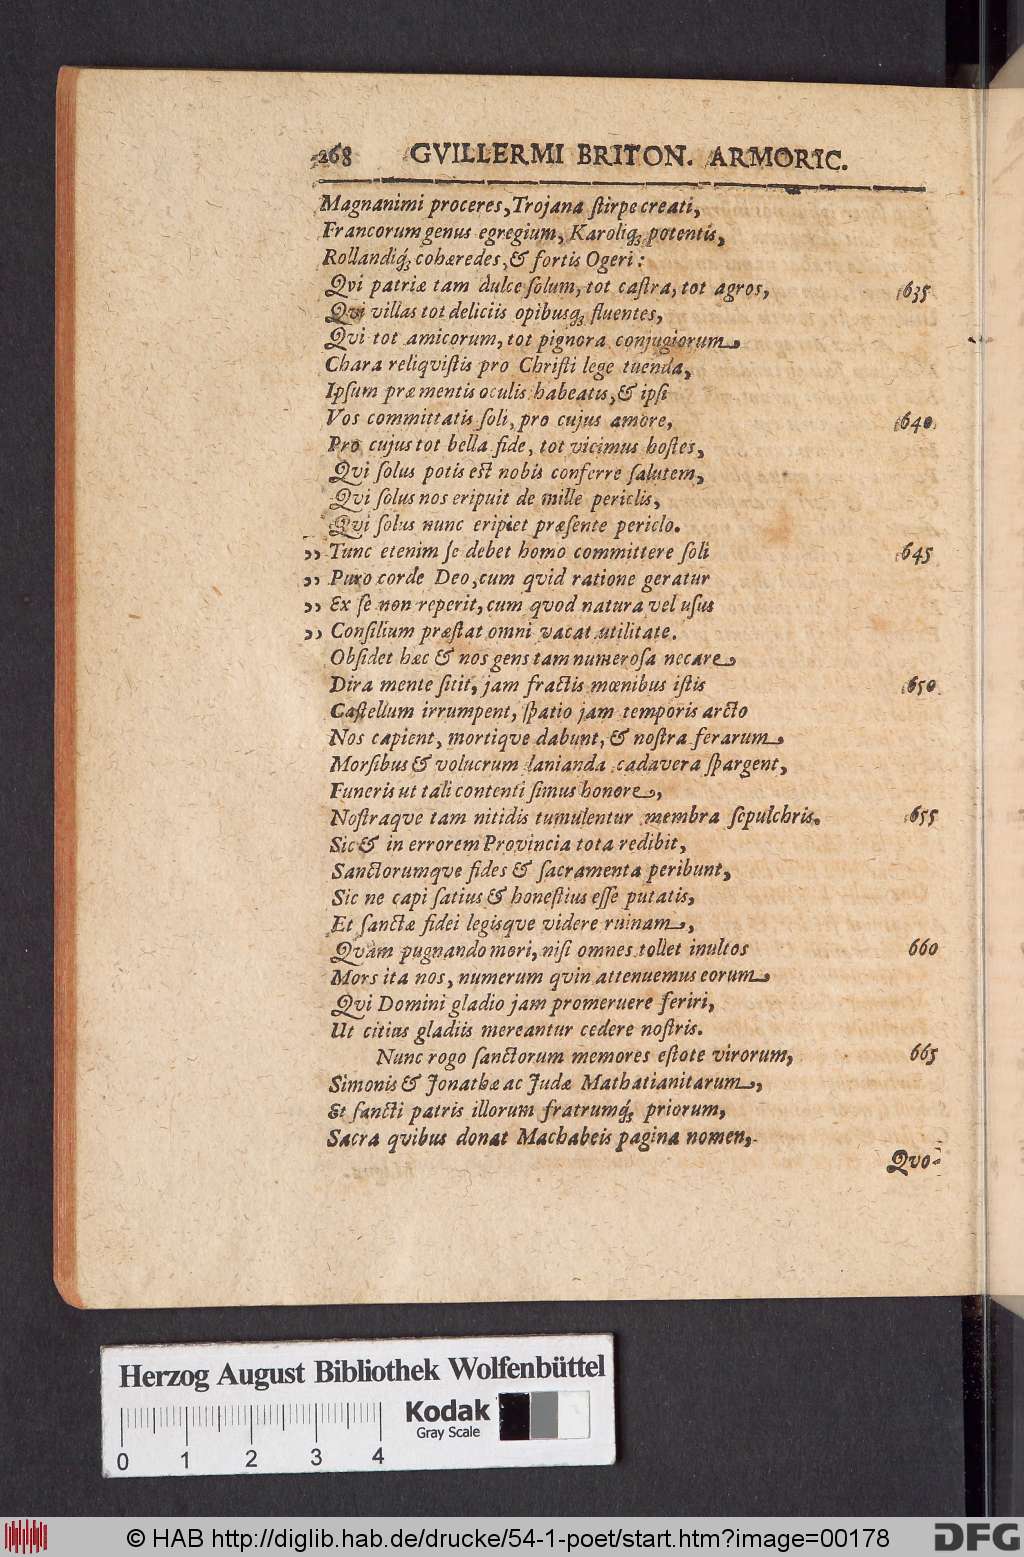 268 GVILLERMI BRITON. ARMORIC.
Magnanimi proceres, Trojana ſtirpe creati,
Francorum genus egregium, Karoliq́; potentis,
Rollandiq́; cohæredes, & fortis Ogeri:
Qvi patriæ tam dulce ſolum, tot caſtra, tot agros, 635
Qvi villas tot deliciis opibusq́; fluentes,
Qvi tot amicorum, tot pignora conjugiorum
Chara reliqviſtis pro Chriſti lege tuenda,
Ipſum præ mentis oculis habeatis, & ipſi
Vos committatis ſoli, pro cujus amore, 640
Pro cujus tot bella fide, tot vicimus hoſtes,
Qvi ſolus potis eſt nobis conferre ſalutem,
Qvi ſolus nos eripuit de mille periclis,
Qvi ſolus nunc eripiet præſente periclo.
„ Tunc etenim ſe debet homo committere ſoli 645
„ Puro corde Deo, cum qvid ratione geratur
„ Ex ſe non reperit, cum qvod natura vel uſus
„ Conſilium præſtat omni vacat utilitate.
Obſidet hæc & nos gens tam numeroſa necare
Dira mente ſitit, jam fractis mœnibus iſtis 650
Caſtellum irrumpent, ſpatio jam temporis arcto
Nos capient, mortiqve dabunt, & noſtra ferarum
Morſibus & volucrum lanianda cadavera ſpargent,
Funeris ut tali contenti ſimus honore,
Noſtraqve tam nitidis tumulentur membra ſepulchris. 655
Sic & in errorem Provincia tota redibit,
Sanctorumqve fides & ſacramenta peribunt,
Sic ne capi ſatius & honeſtius eſſe putatis,
Et ſanctæ fidei legisqve videre ruinam,
Qvàm pugnando mori, niſi omnes tollet inultos 660
Mors ita nos, numerum qvin attenuemus eorum
Qvi Domini gladio jam promeruere feriri,
Ut citius gladiis mereantur cedere noſtris.
Nunc rogo ſanctorum memores eſtote virorum, 665
Simonis & Jonathæ ac Judæ Mathatianitarum,
Et ſancti patris illorum fratrumq́; priorum,
Sacra qvibus donat Machabeis pagina nomen,
Qvo-
Herzog August Bibliothek Wolfenbüttel
Kodak
Gray Scale
0 1 2 3 4
© HAB http://diglib.hab.de/drucke/54-1-poet/start.htm?image=00178
DFG